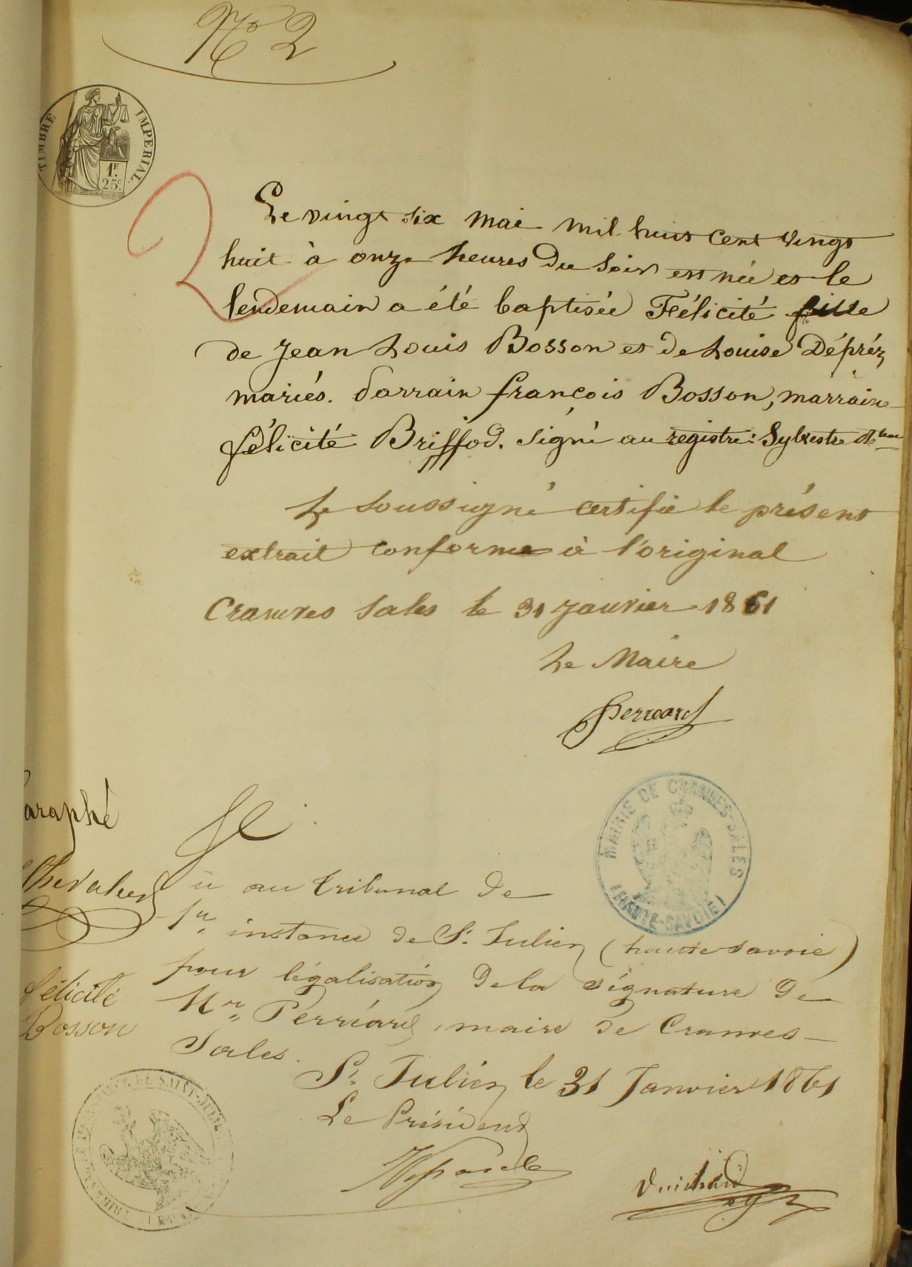 No 2
TIMBRE IMPERIAL
1F
25c
2
Le vingt six mai mil huit cent vingt
huit à onze heures du soir est née et le
lendemain a été baptisée Félicité fille
de Jean Louis Bosson et de Louise Dépréz,
mariés. Parrain françois Bosson, marraine
félicité Briffod. Signé au registre: Sylvestre
Le soussigné certifie le présent
extrait conforme à l'original
Cranves Sales le 31 Janvier 1861
Le Maire
Perréard
MAIRIE DE CRANVES-SALES
(HAUTE-SAVOIE)
paraphé
Chevalier
félicité
Bosson
Vu au tribunal de
1re instance de St Julien (haute Savoie)
pour légalisation de la signature de
Mr Perréard, maire de Cranves-
Sales.
St Julien le 31 Janvier 1861
Le Président